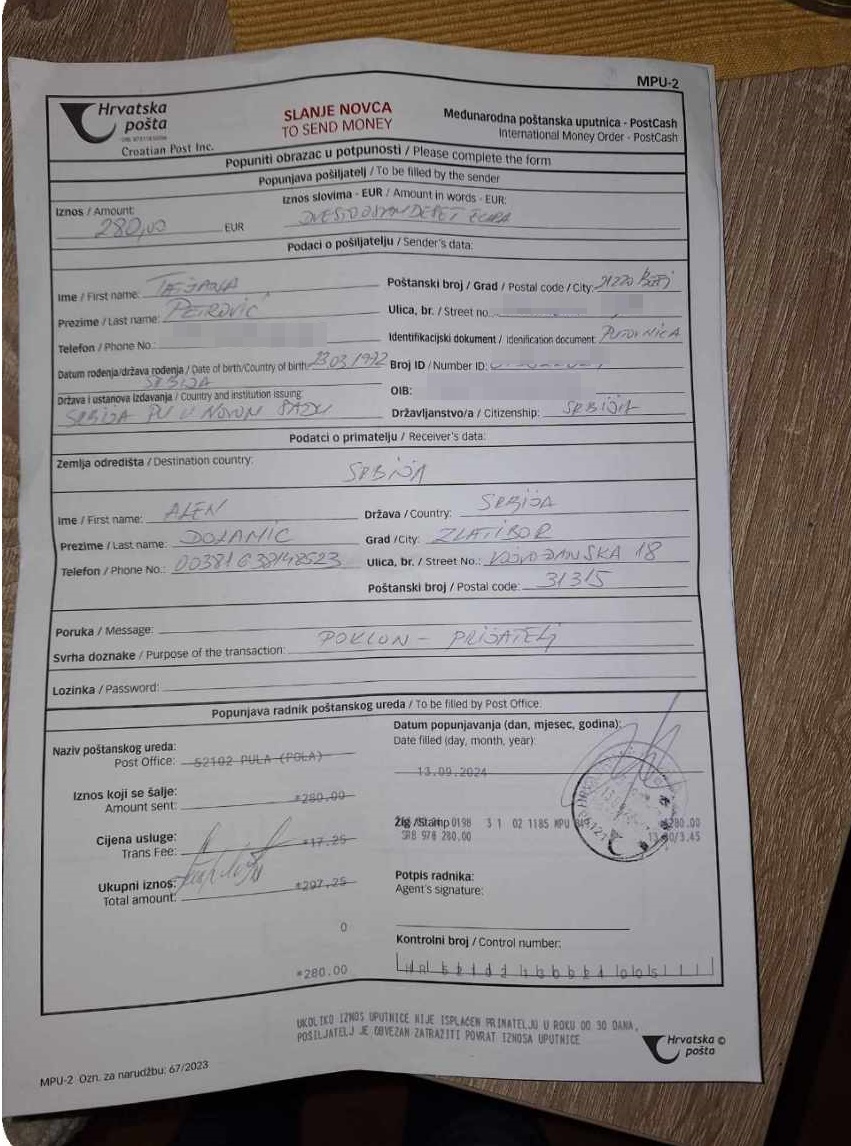 MPU-2
Hrvatska pošta
Croatian Post Inc.
SLANJE NOVCA
TO SEND MONEY
Međunarodna poštanska uputnica - PostCash
International Money Order - PostCash
Popuniti obrazac u potpunosti / Please complete the form
Popunjava pošiljatelj / To be filled by the sender
Iznos / Amount: 280,00 EUR
Iznos slovima - EUR / Amount in words - EUR:
Podaci o pošiljatelju / Sender's data:
Ime / First name: TATJANA
Poštanski broj / Grad / Postal code / City: 21220
Prezime / Last name: PETROVIĆ
Ulica, br. / Street no.
Telefon / Phone No.:
Identifikacijski dokument / Idenification document: PUTOVNICA
Datum rođenja/država rođenja / Date of birth/Country of birth: 23.03.1972
SRBIJA
Broj ID / Number ID:
Država i ustanova izdavanja / Country and institution issuing:
SRBIJA PU U NOVOM SADU
OIB:
Državljanstvo/a / Citizenship: SRBIJA
Podatci o primatelju / Receiver's data:
Zemlja odredišta / Destination country: SRBIJA
Ime / First name: ALEN
Država / Country: SRBIJA
Prezime / Last name: DOLAMIĆ
Grad /City: ZLATIBOR
Telefon / Phone No.: 00381638148523
Ulica, br. / Street No.: VOJVOĐANSKA 18
Poštanski broj / Postal code: 31315
Poruka / Message:
Svrha doznake / Purpose of the transaction: POKLON - PRIJATELJ
Lozinka / Password:
Popunjava radnik poštanskog ureda / To be filled by Post Office:
Naziv poštanskog ureda:
Post Office: 52102 PULA (POLA)
Datum popunjavanja (dan, mjesec, godina):
Date filled (day, month, year):
13.09.2024
Iznos koji se šalje:
Amount sent: *280.00
Žig /Stamp 0198 3 1 02 1185 MPU
SRB 978 280.00
Cijena usluge:
Trans Fee: *17.25
Ukupni iznos:
Total amount: *297,25
Potpis radnika:
Agent's signature:
0
Kontrolni broj / Control number:
*280.00
UKOLIKO IZNOS UPUTNICE NIJE ISPLAĆEN PRIMATELJU U ROKU OD 30 DANA,
POŠILJATELJ JE OBVEZAN ZATRAŽITI POVRAT IZNOSA UPUTNICE
Hrvatska pošta
MPU-2 Ozn. za narudžbu: 67/2023